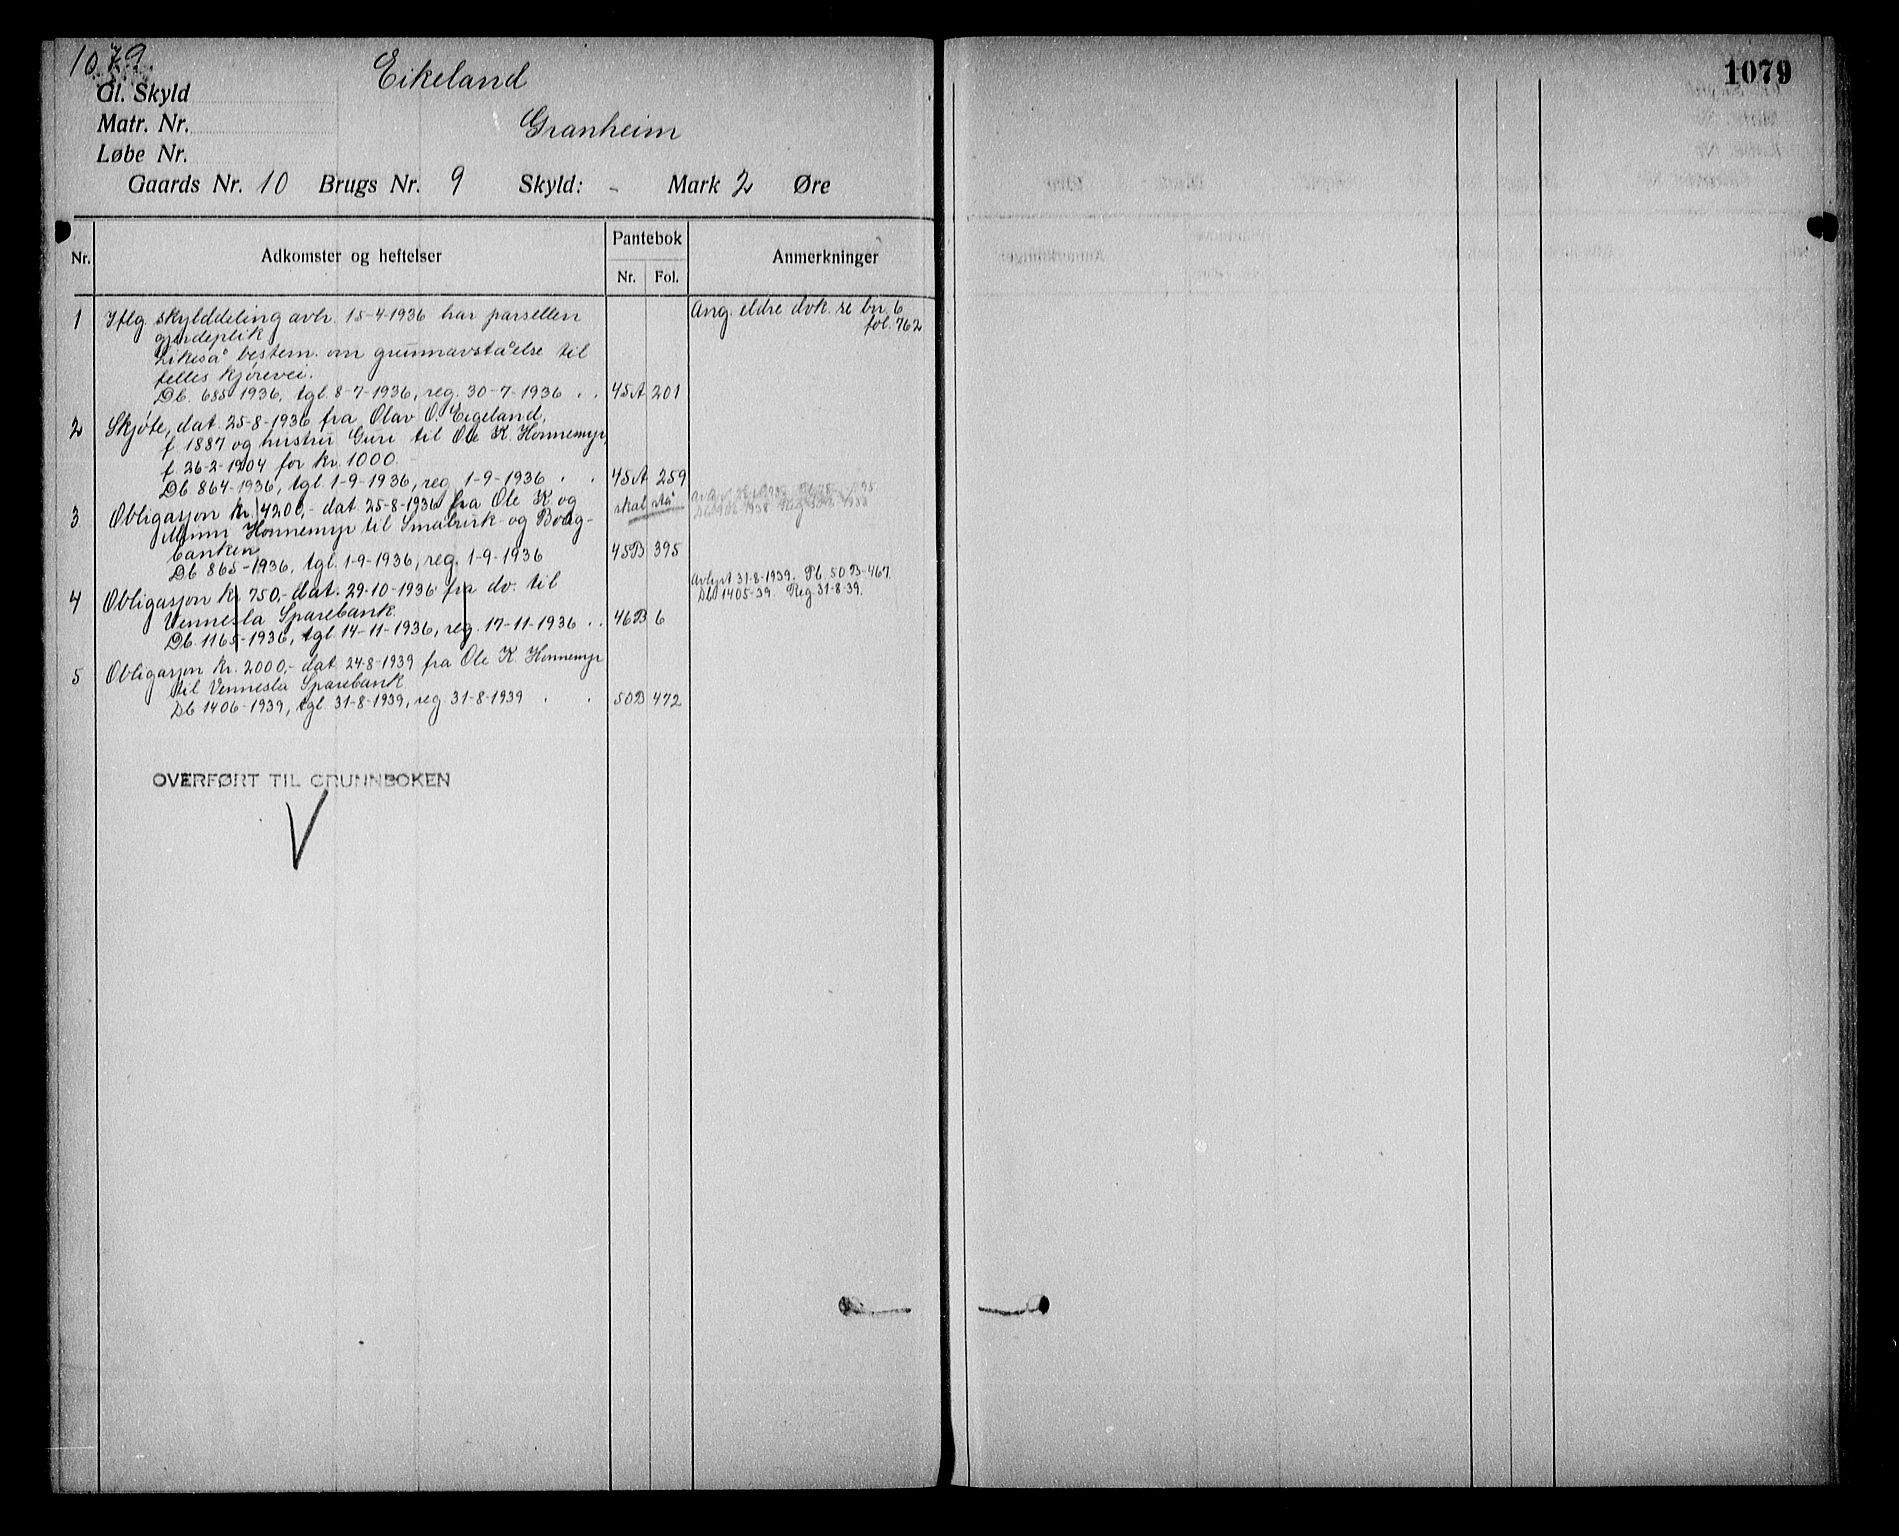 1079
1079
Eikeland
Gl. Skyld
Matr. Nr.
Granheim
Løbe Nr.
Gaards Nr. 10 Brugs Nr. 9 Skyld: - Mark 2 Øre
Nr. Adkomster og heftelser Pantebok Anmerkninger
Nr. Fol.
1 Iflg. skylddeling avh. 15-4-1936 har parsellen Ang. eldre dok. se bn 6
gjerdeplik fol. 762
Likeså bestem. om grunnavståelse til
felles kjørevei.
Db. 685-1936, tgl. 8-7-1936, reg. 30-7-1936 . . 45A 201
2 Skjøte, dat. 25-8-1936 fra Olav O. Eigeland,
f. 1887 og hustru Guri til Ole K. Honnemyr,
f. 26-2-1904 for kr. 1000.-
Db 864-1936, tgl 1-9-1936, reg. 1-9-1936 . . 45A 259
3 Obligasjon kr. 4200,- dat 25-8-1936 fra Ole K og skal stå
Honnemyr til Småbruk- og Bolig-
banken
Db 865-1936, tgl. 1-9-1936, reg. 1-9-1936 45B 395
4 Obligasjon kr. 750,- dat. 29-10-1936 fra do. til Avlyst 31-8-1939. Pb. 50B-467.
Vennesla Sparebank. Db 1405-39. Reg. 31-8-39.
Db. 1165-1936, tgl 14-11-1936, reg. 17-11-1936 . . 46B 6
5 Obligasjon kr. 2000,- dat 24-8-1939 fra Ole K. Honnemyr
til Vennesla Sparebank
Db 1406-1939, tgl. 31-8-1939, reg 31-8-1939 . . 50B 472
OVERFØRT TIL GRUNNBOKEN